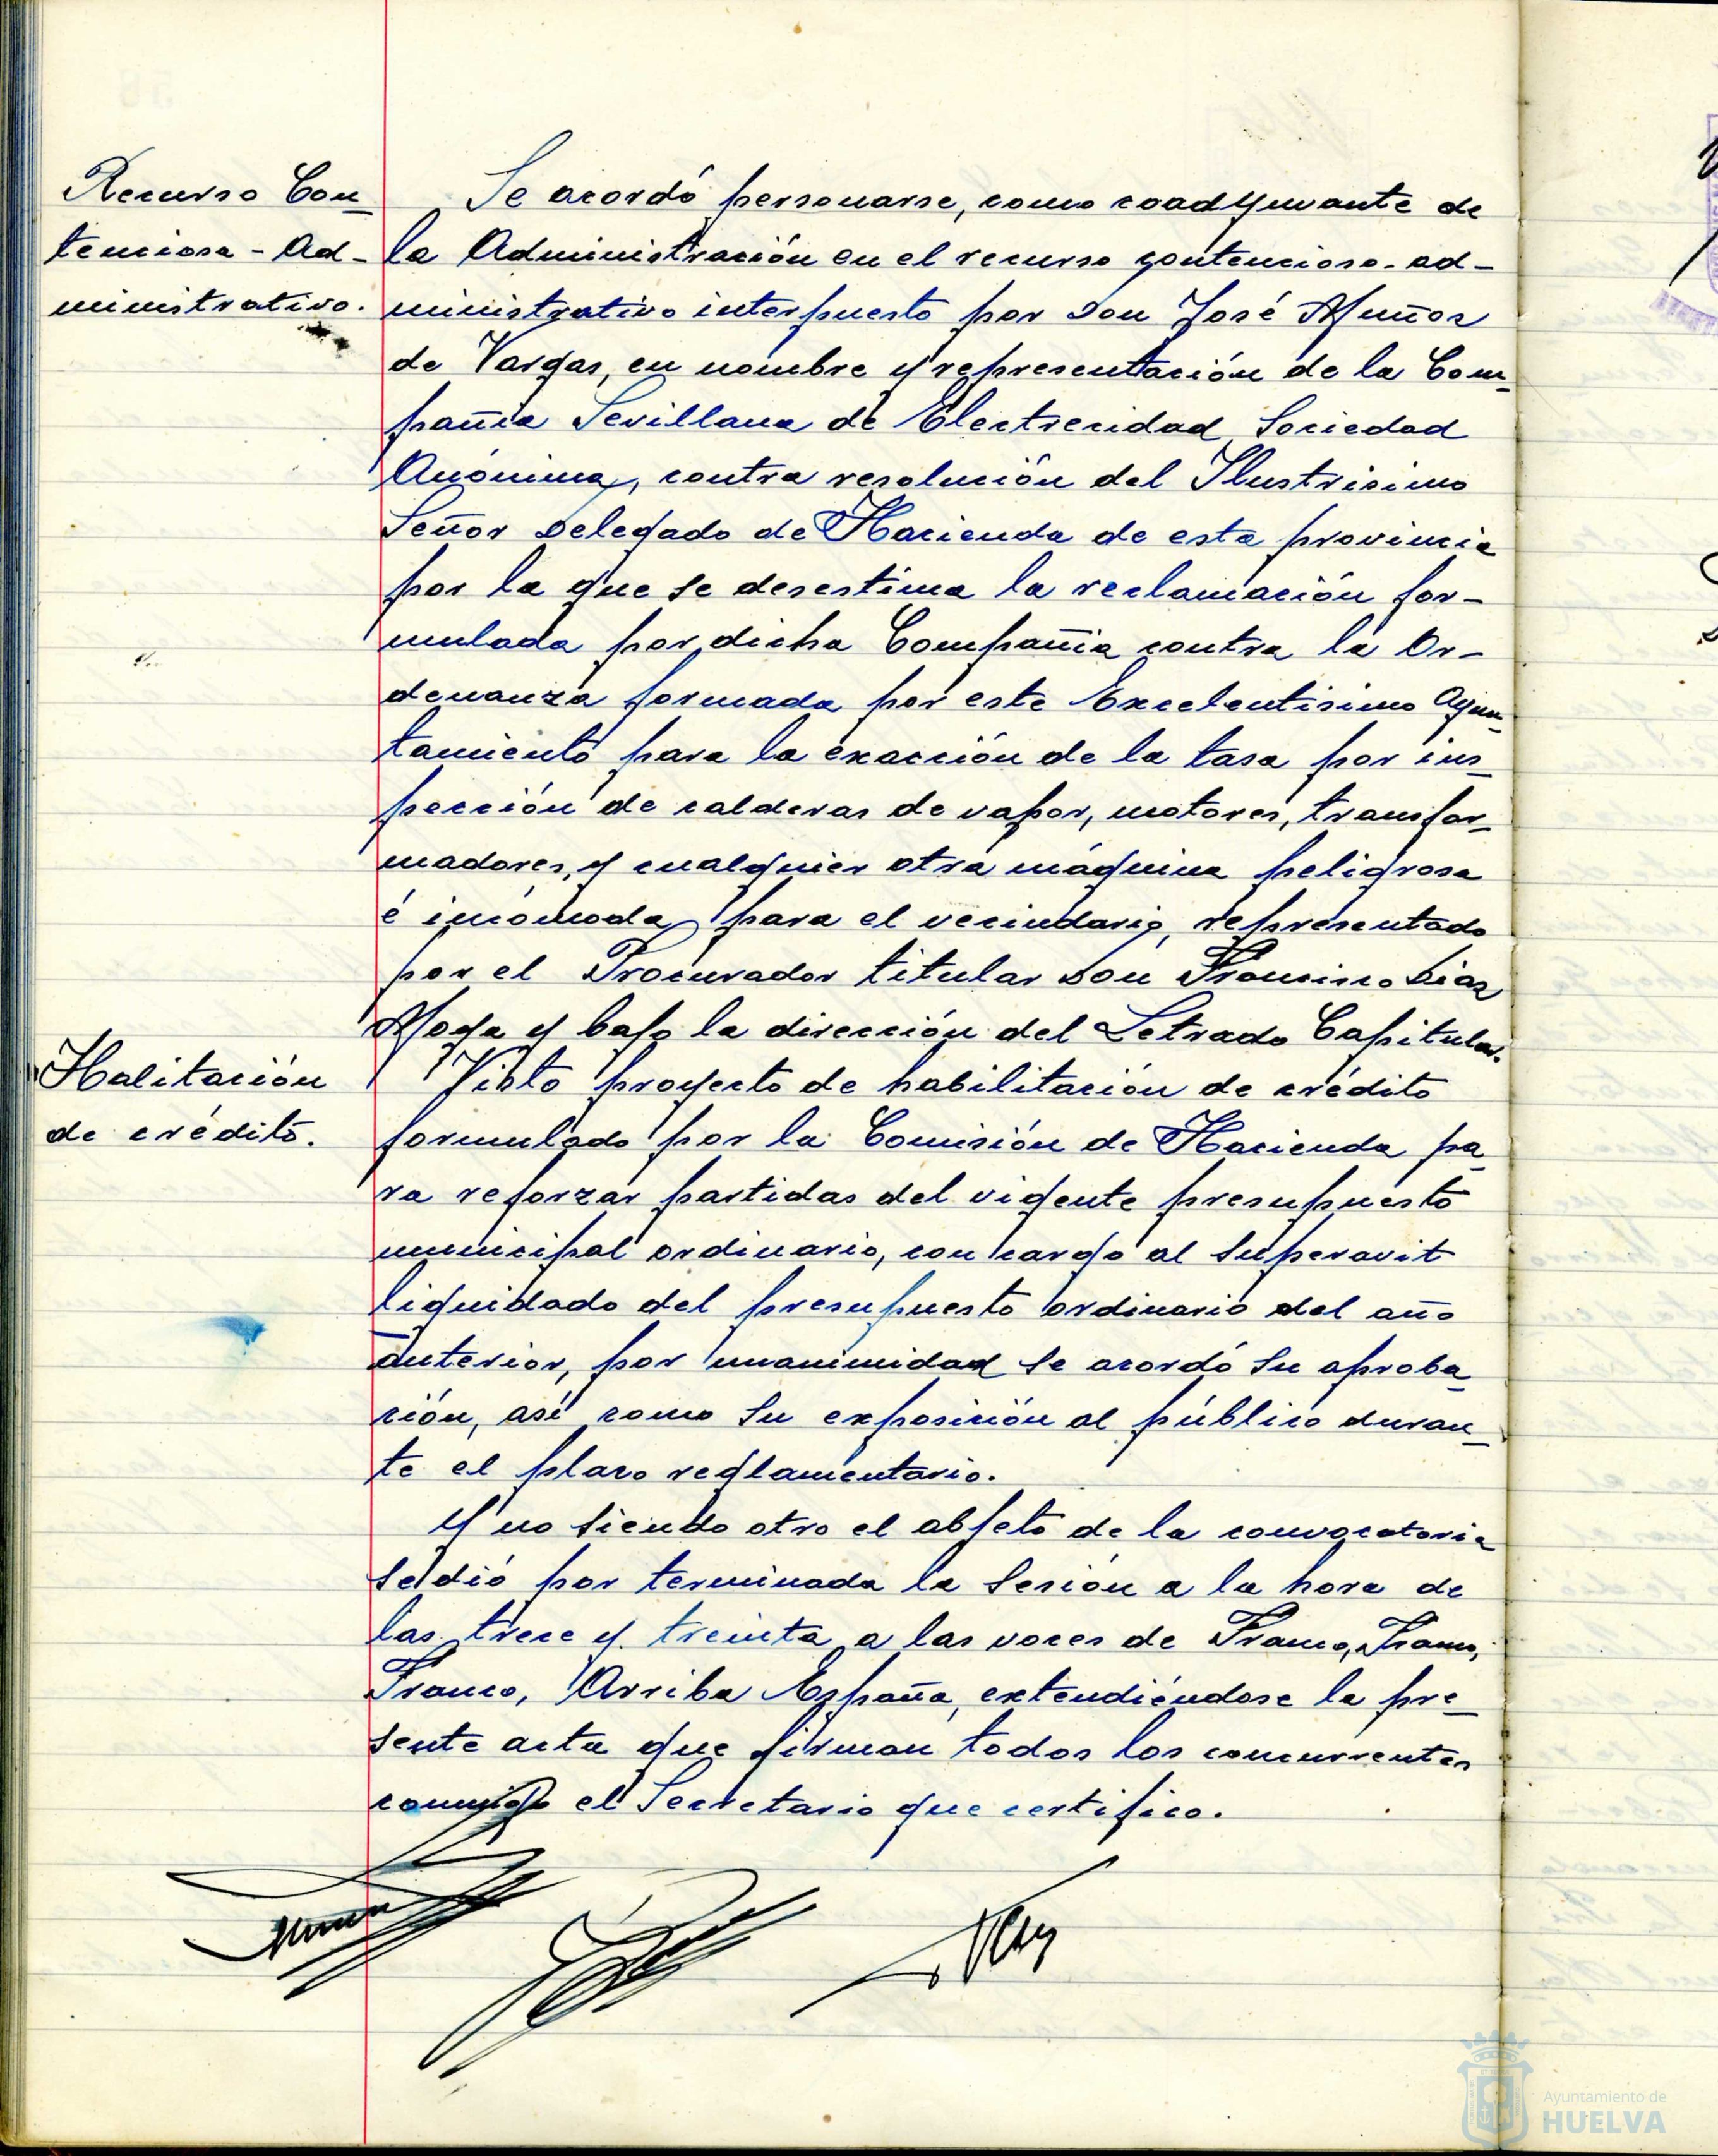 Recurso Con_
tencioso - Ad-
ministrativo.
Se acordó personarse, como coadyuvante de
la Administración en el recurso contencioso-ad-
ministrativo interpuesto por Don José Muñoz
de Vargas, en nombre y representación de la Com_
pañía Sevillana de Electricidad Sociedad
Anónima, contra resolución del Ilustrísimo
Señor Delegado de Hacienda de esta provincia
por la que se desestima la reclamación for-
mulada por dicha Compañia contra la Or-
denanza formada por este Excelentísimo Ayun_
tamiento para la exacción de la tasa por ins_
pección de calderas de vapor, motores, transfor_
madores, y cualquier otra máquina peligrosa
é incómoda para el vecindario, representado
por el Procurador titular Don Francisco Díaz
Moya y bajo la dirección del Letrado Capitular.
Halitación
de crédito.
Visto proyecto de habilitación de crédito
formulado por la Comisión de Hacienda pa_
ra reforzar partidas del vigente presupuesto
municipal ordinario, con cargo al Superavit
liquidado del presupuesto ordinario del año
anterior, por unanimidad se acordó su aproba_
ción, así como su exposición al público duran_
te el plazo reglamentario.
Y no siendo otro el objeto de la convocatoria
se dió por terminada la sesión a la hora de
las trece y treinta a las voces de Franco, Franco,
Franco, Arriba España, extendiéndose la pre_
sente acta que firman todos los concurrentes
conmigo el Secretario que certifico.
Ayuntamiento de
HUELVA